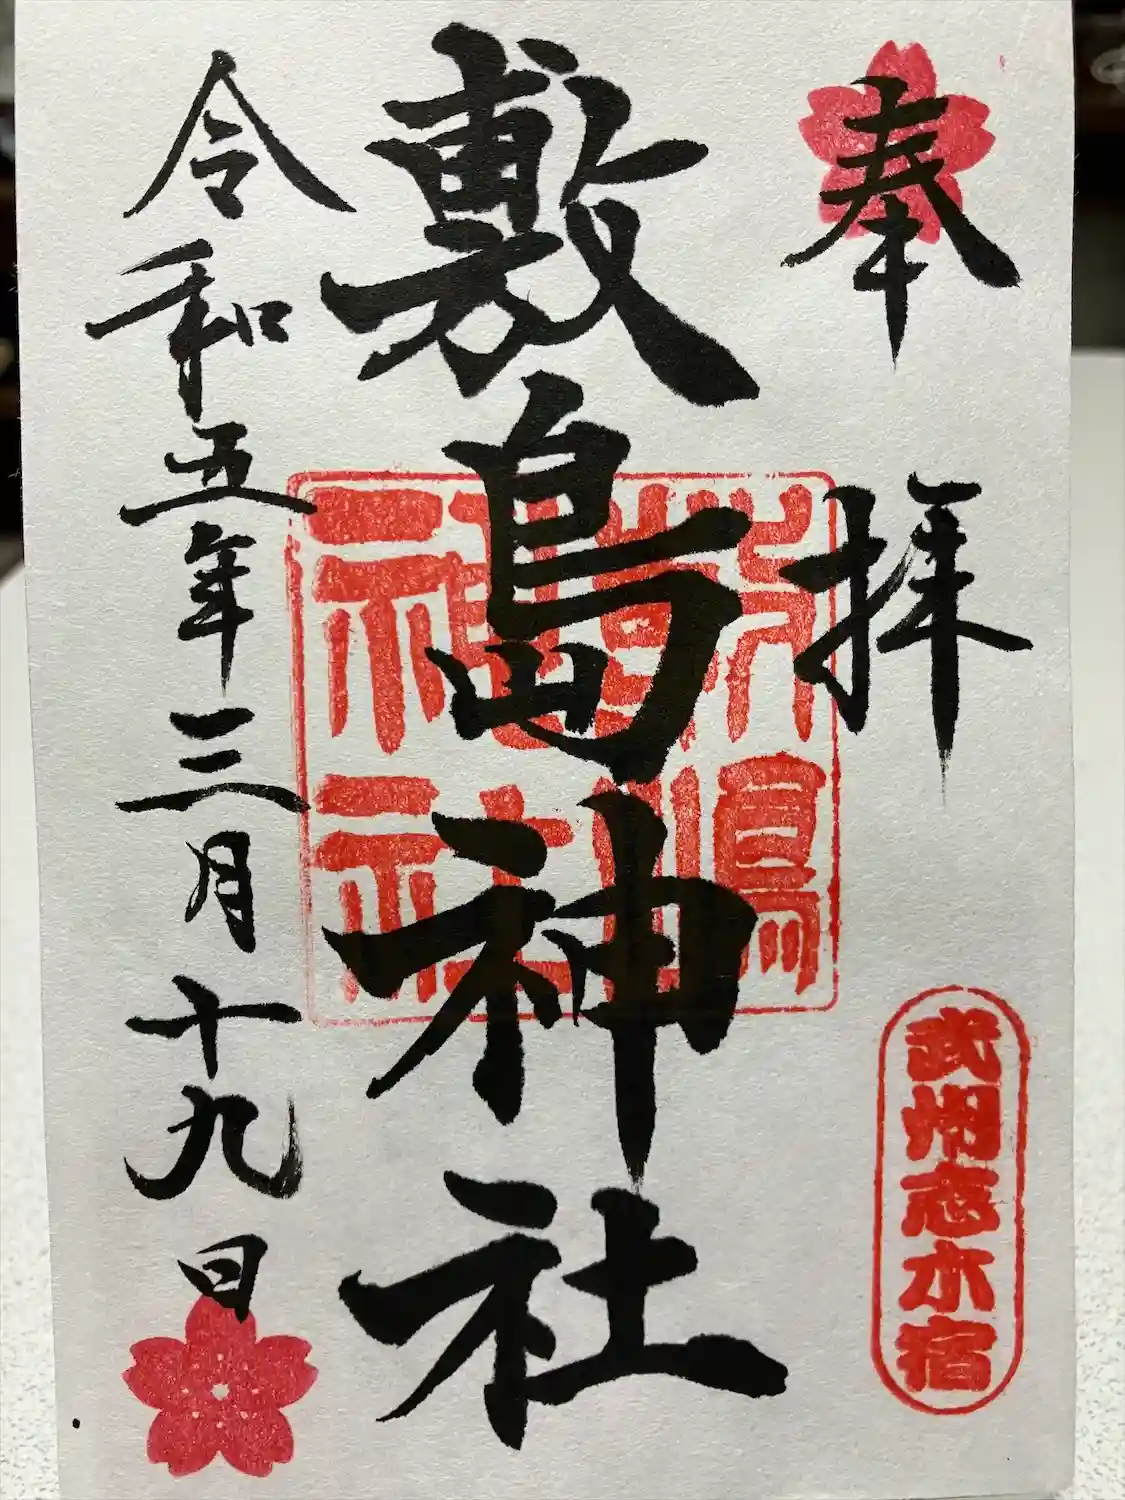 奉拝
武州志木宿
敷島神社
敷島神社
令和五年三月十九日